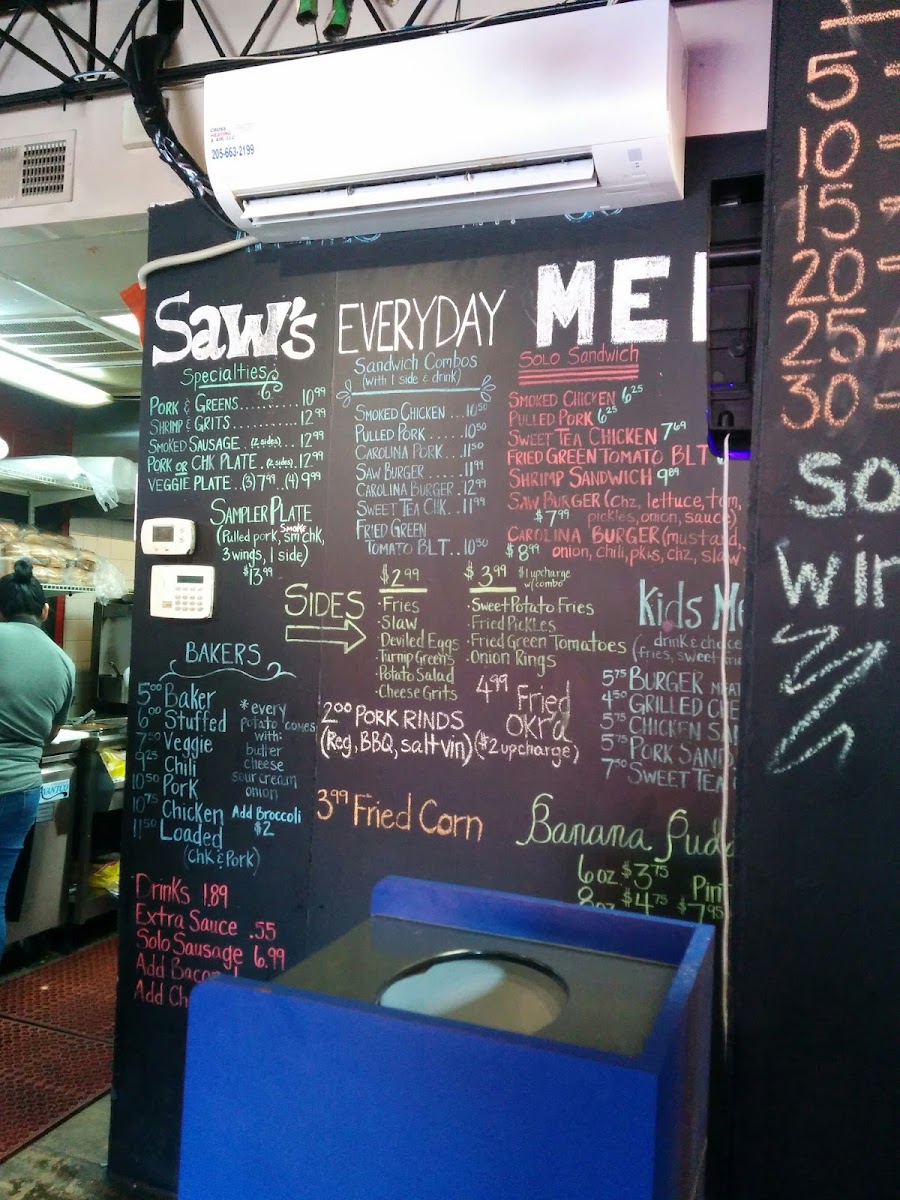 CRUSE
HEATING
& AIR, LLC
205-663-2199
Saw's EVERYDAY
Specialties
PORK & GREENS.......... 10.99
SHRIMP & GRITS........... 12.99
SMOKED SAUSAGE. (2 sides).. 12.99
PORK OR CHK PLATE.. (2 sides). 12.99
VEGGIE PLATE...(3) 7.99.. (4) 9.99
SAMPLER PLATE
(Pulled pork, smoke sm chk,
3 wings, 1 side)
$13.99
Sandwich Combos
(with 1 side & drink)
SMOKED CHICKEN ... 10.50
PULLED PORK ...... 10.50
CAROLINA PORK .... 11.50
SAW BURGER ..... 11.99
CAROLINA BURGER . 12.99
SWEET TEA CHK. .. 11.99
FRIED GREEN
TOMATO BLT.. 10.50
SOLO SANDWICH
SMOKED CHICKEN 6.25
PULLED PORK 6.25
SWEET TEA CHICKEN 7.69
FRIED GREEN TOMATO BLT
SHRIMP SANDWICH 9.89
SAW BURGER (Chz, lettuce, tom,
$7.99 pickles, onion, sauce)
CAROLINA BURGER (mustard,
$8.99 onion, chili, pkls, chz, slaw
SIDES
$2.99
· Fries
· Slaw
· Deviled Eggs
· Turnip Greens
· Potato Salad
· Cheese Grits
$3.99 $1 upcharge
w/combo
· Sweet Potato Fries
· Fried Pickles
· Fried Green Tomatoes
· Onion Rings
4.99 Fried
OKra
($2 upcharge)
2.00 PORK RINDS
(Reg, BBQ, salt vin)
3.99 Fried Corn
BAKERS
5.00 Baker
6.00 Stuffed
7.50 Veggie
9.25 Chili
10.50 Pork
10.75 Chicken
11.50 Loaded
(Chk & Pork)
* every
potato comes
with:
butter
cheese
sour cream
onion
Add Broccoli
$2
Drinks 1.89
Extra Sauce .55
Solo Sausage 6.99
Add
Add
Kids
drink & choice
(fries, sweet
5.75 BURGER
4.50 GRILLED
5.75 CHICKEN
5.75 PORK
7.50 SWEET TEA
Banana
6 oz. $3.75
8 oz $4.75
$7.95
5 =
10 =
15 =
20 =
25 =
30 =